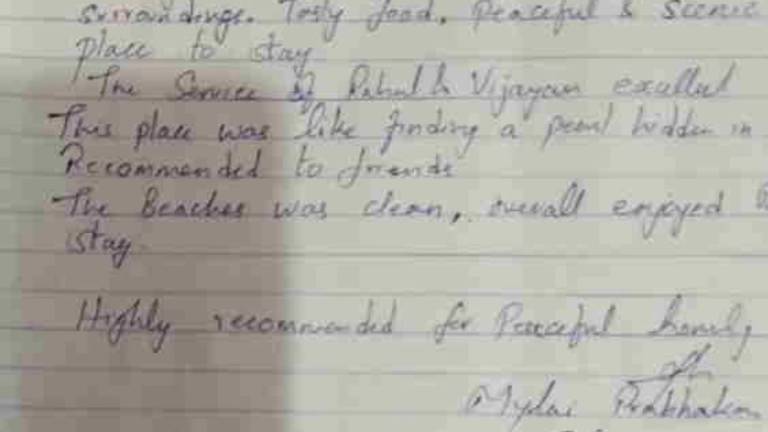 surroundings. Tasty food, Peaceful & Scenic
place to stay
The Service of Rahul & Vijayan excellent
This place was like finding a pearl hidden in
Recommended to friends
The Beaches was clean, overall enjoyed
stay.
Highly recommended for Peaceful
Prabhakar